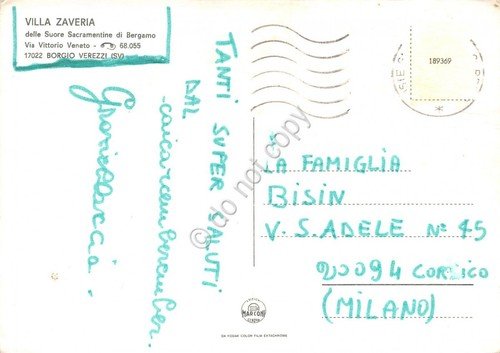 VILLA ZAVERIA
delle Suore Sacramentine di Bergamo
Via Vittorio Veneto - ☎ 68.055
17022 BORGIO VEREZZI (SV)
189369
TANTI SUPER SALUTI
DAL
LA FAMIGLIA
BISIN
V. S. ADELE N° 45
20094 CORSICO
(MILANO)
MARCONI
DA KODAK COLOR FILM EKTACHROME
do not copy